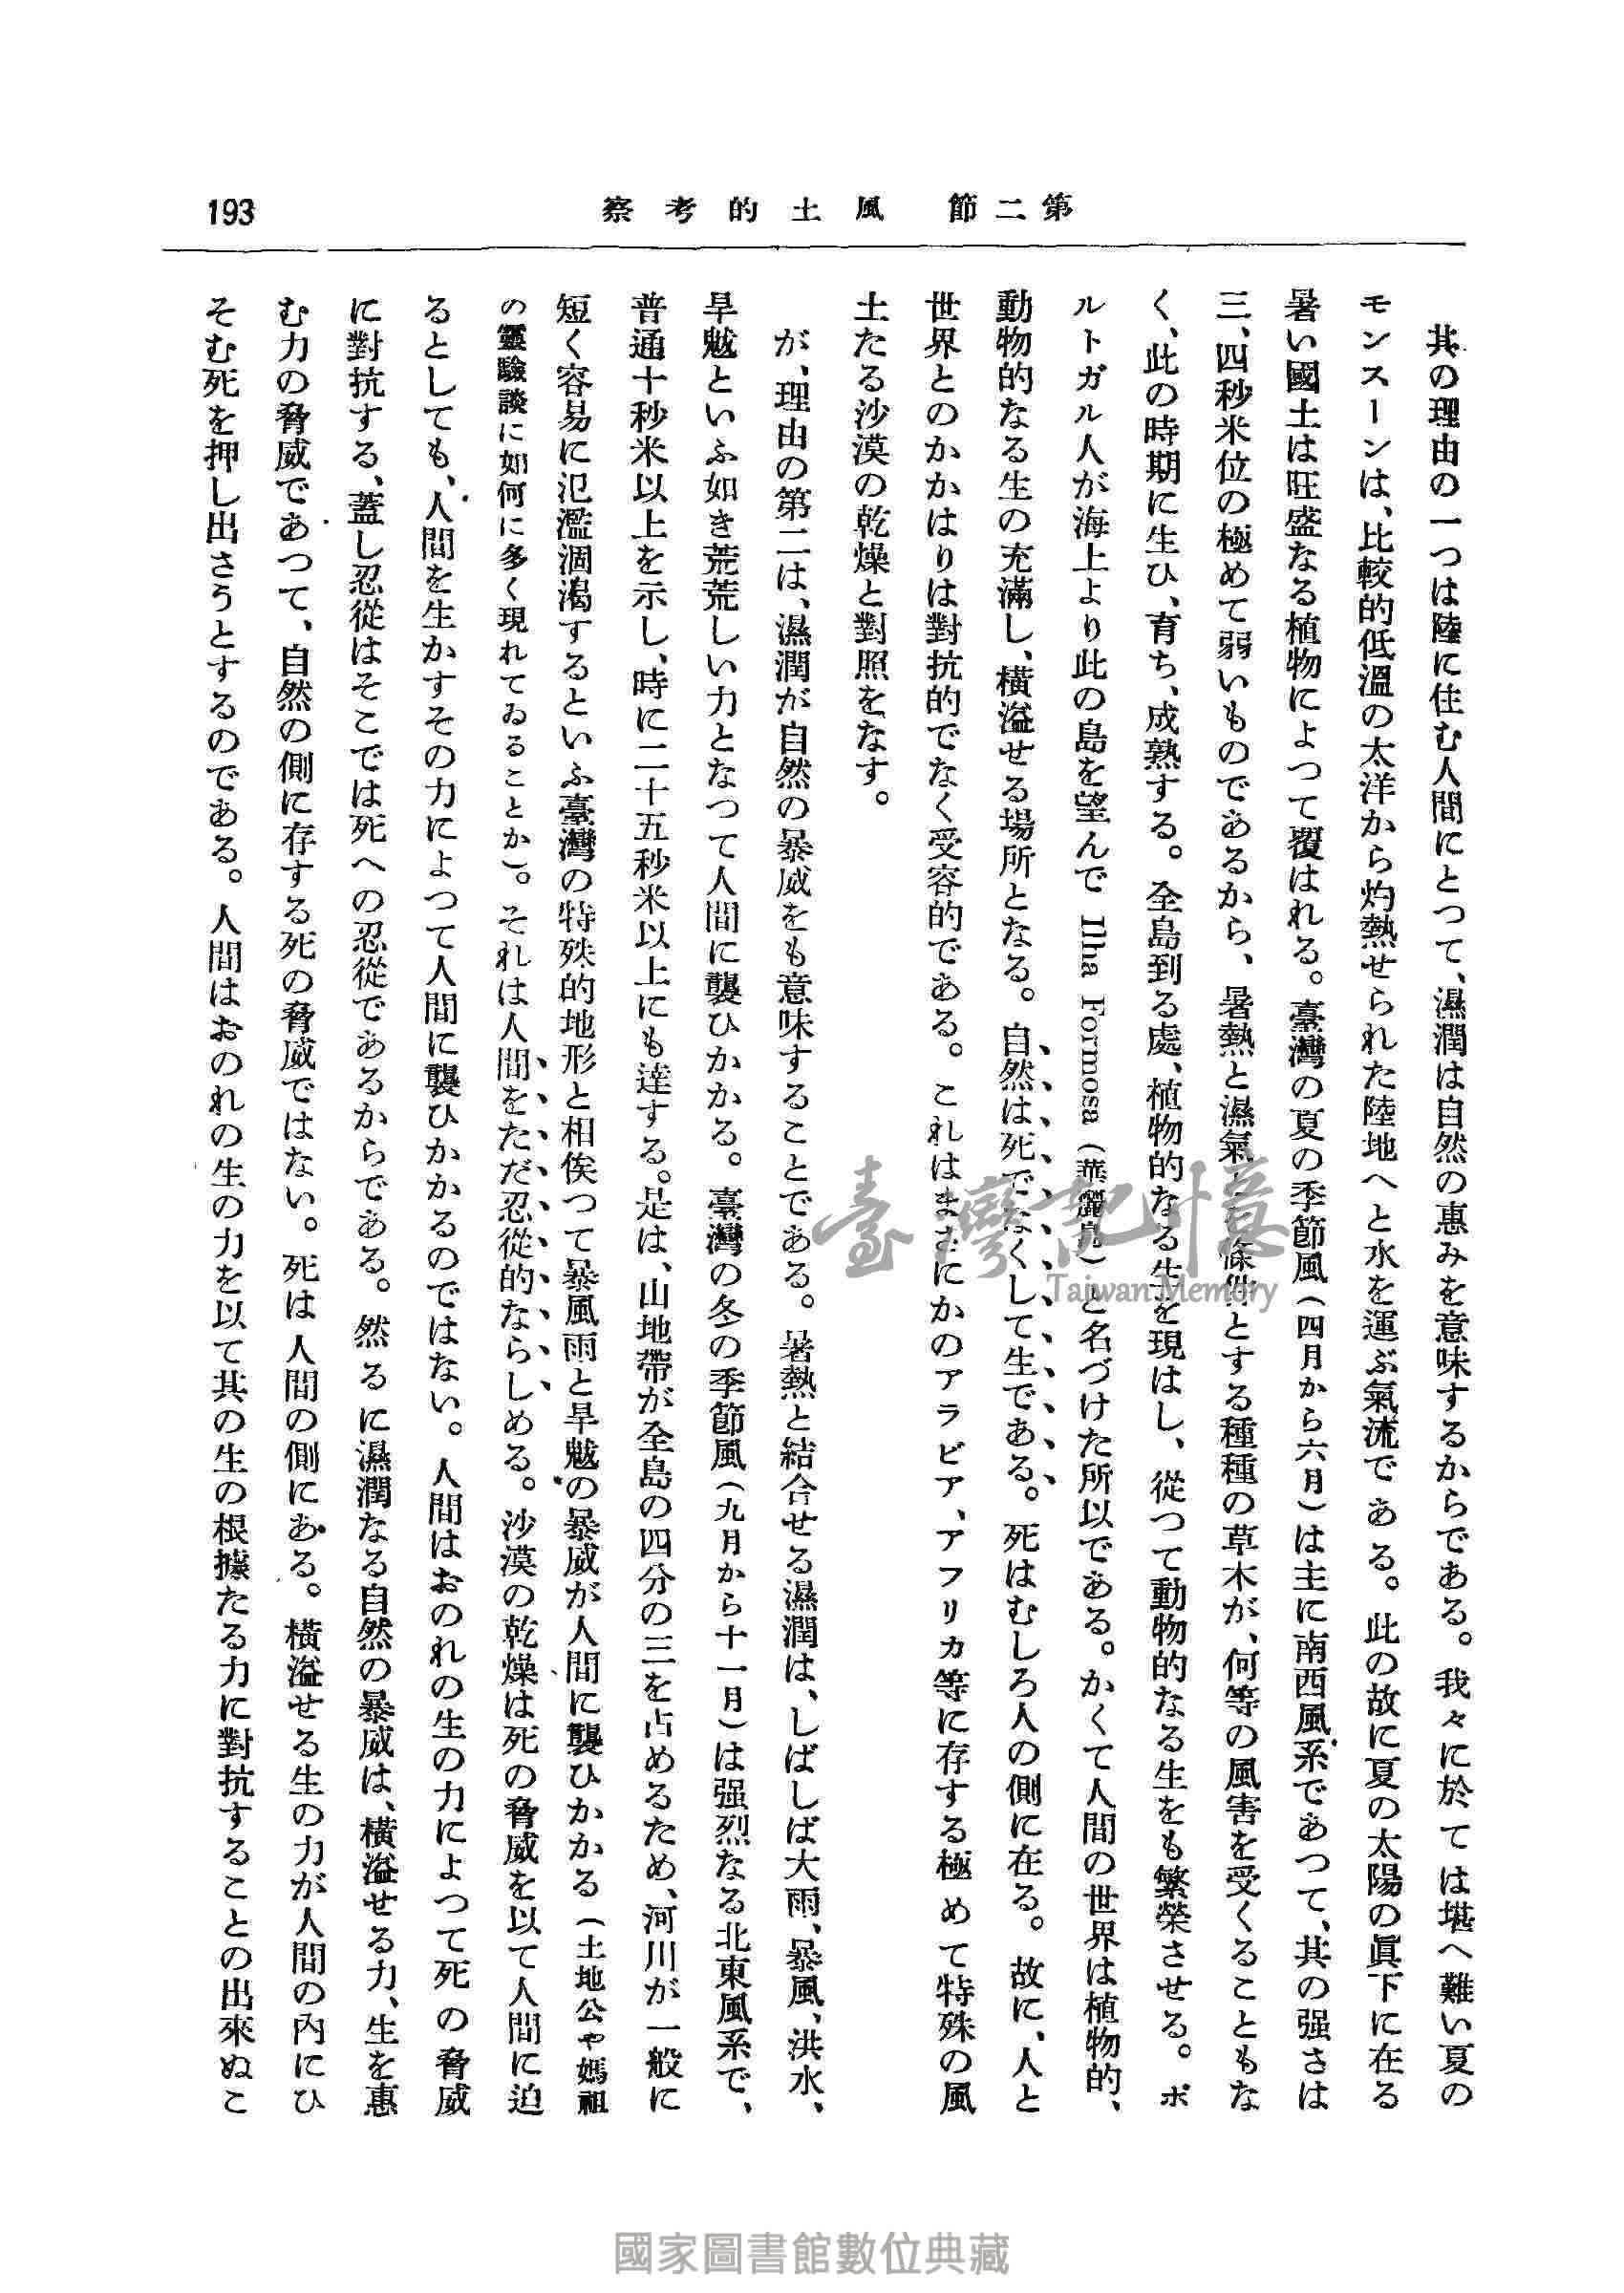 第二節　風土的考察
193
其の理由の一つは陸に住む人間にとつて、濕潤は自然の惠みを意味するからである。我々に於ては堪へ難い夏の
モンスーンは、比較的低溫の太洋から灼熱せられた陸地へと水を運ぶ氣流である。此の故に夏の太陽の眞下に在る
暑い國土は旺盛なる植物によつて覆はれる。臺灣の夏の季節風（四月から六月）は主に南西風系であつて、其の强さは
三、四秒米位の極めて弱いものであるから、暑熱と濕氣條件とする種種の草木が、何等の風害を受くることもな
く、此の時期に生ひ、育ち、成熟する。全島到る處、植物的なる生を現はし、從つて動物的なる生をも繁榮させる。ポ
ルトガル人が海上より此の島を望んで Ilha Formosa（華麗島）と名づけた所以である。かくて人間の世界は植物的、
動物的なる生の充滿し、橫溢せる場所となる。自然は死でなくして生である。死はむしろ人の側に在る。故に、人と
世界とのかかはりは對抗的でなく受容的である。これはまさにかのアラビア、アフリカ等に存する極めて特殊の風
土たる沙漠の乾燥と對照をなす。
が、理由の第二は、濕潤が自然の暴威をも意味することである。暑熱と結合せる濕潤は、しばしば大雨、暴風、洪水、
旱魃といふ如き荒荒しい力となつて人間に襲ひかかる。臺灣の冬の季節風（九月から十一月）は强烈なる北東風系で、
普通十秒米以上を示し、時に二十五秒米以上にも達する。是は、山地帶が全島の四分の三を占めるため、河川が一般に
短く容易に氾濫涸渴するといふ臺灣の特殊的地形と相俟つて暴風雨と旱魃の暴威が人間に襲ひかかる（土地公や媽祖
の靈驗談に如何に多く現れてゐることか）。それは人間をただ忍從的ならしめる。沙漠の乾燥は死の脅威を以て人間に迫
るとしても、人間を生かすその力によつて人間に襲ひかかるのではない。人間はおのれの生の力によつて死の脅威
に對抗する、蓋し忍從はそこでは死への忍從であるからである。然るに濕潤なる自然の暴威は、橫溢せる力、生を惠
む力の脅威であつて、自然の側に存する死の脅威ではない。死は人間の側にある。橫溢せる生の力が人間の內にひ
そむ死を押し出さうとするのである。人間はおのれの生の力を以て其の生の根據たる力に對抗することの出來ぬこ
臺灣記憶
Taiwan Memory
國家圖書館數位典藏